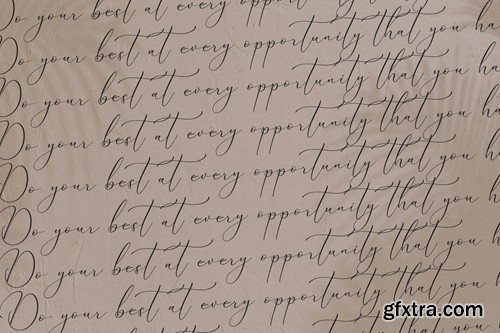 Do your best at every opportunity that you ha
Do your best at every opportunity that you ha
Do your best at every opportunity that you ha
Do your best at every opportunity that you h
Do your best at every opportunity that you h
Do your best at every opportunity that you h
Do your best at every opportunity that you h
Do your best at every opportunity that you
Do your best at every opportunity
gfxtra.com